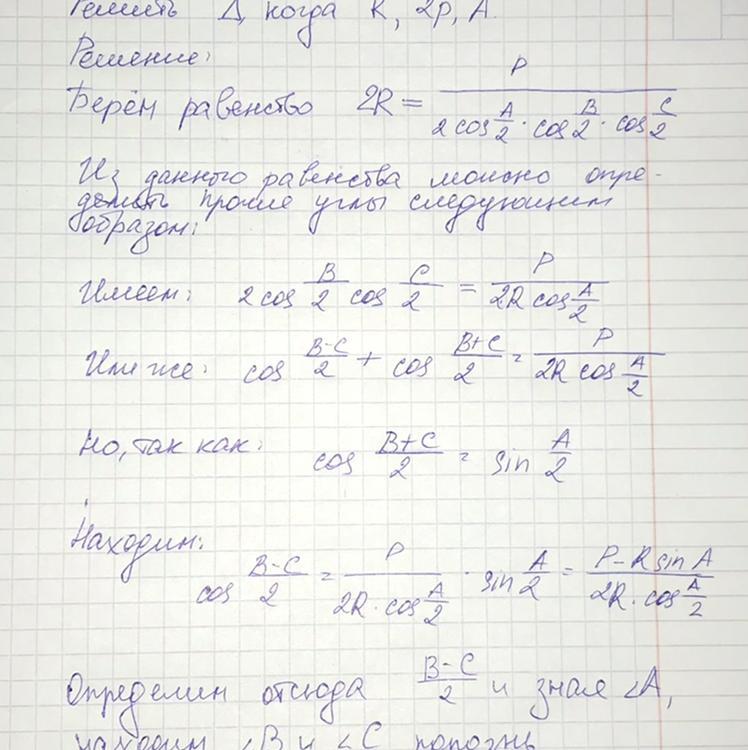 Решить Δ, когда R, 2p, A.
Решение:
Берём равенство 2R = P / (2 cos A/2 · cos B/2 · cos C/2)
Из данного равенства можно опре-
делить прочие углы следующим
образом:
Имеем: 2 cos B/2 cos C/2 = P / (2R cos A/2)
Или же: cos (B-C)/2 + cos (B+C)/2 = P / (2R cos A/2)
Но, так как: cos (B+C)/2 = sin A/2
Находим:
cos (B-C)/2 = P / (2R · cos A/2) · sin A/2 = (P - R sin A) / (2R · cos A/2)
Определим отсюда (B-C)/2 и зная ∠A,
находим ∠B и ∠C